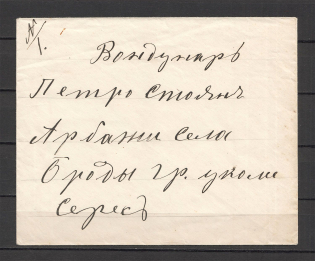 № 1.
Вондунаръ
Петро Стоянъ
Арбанш села
Броды гр. уколи
Сересъ